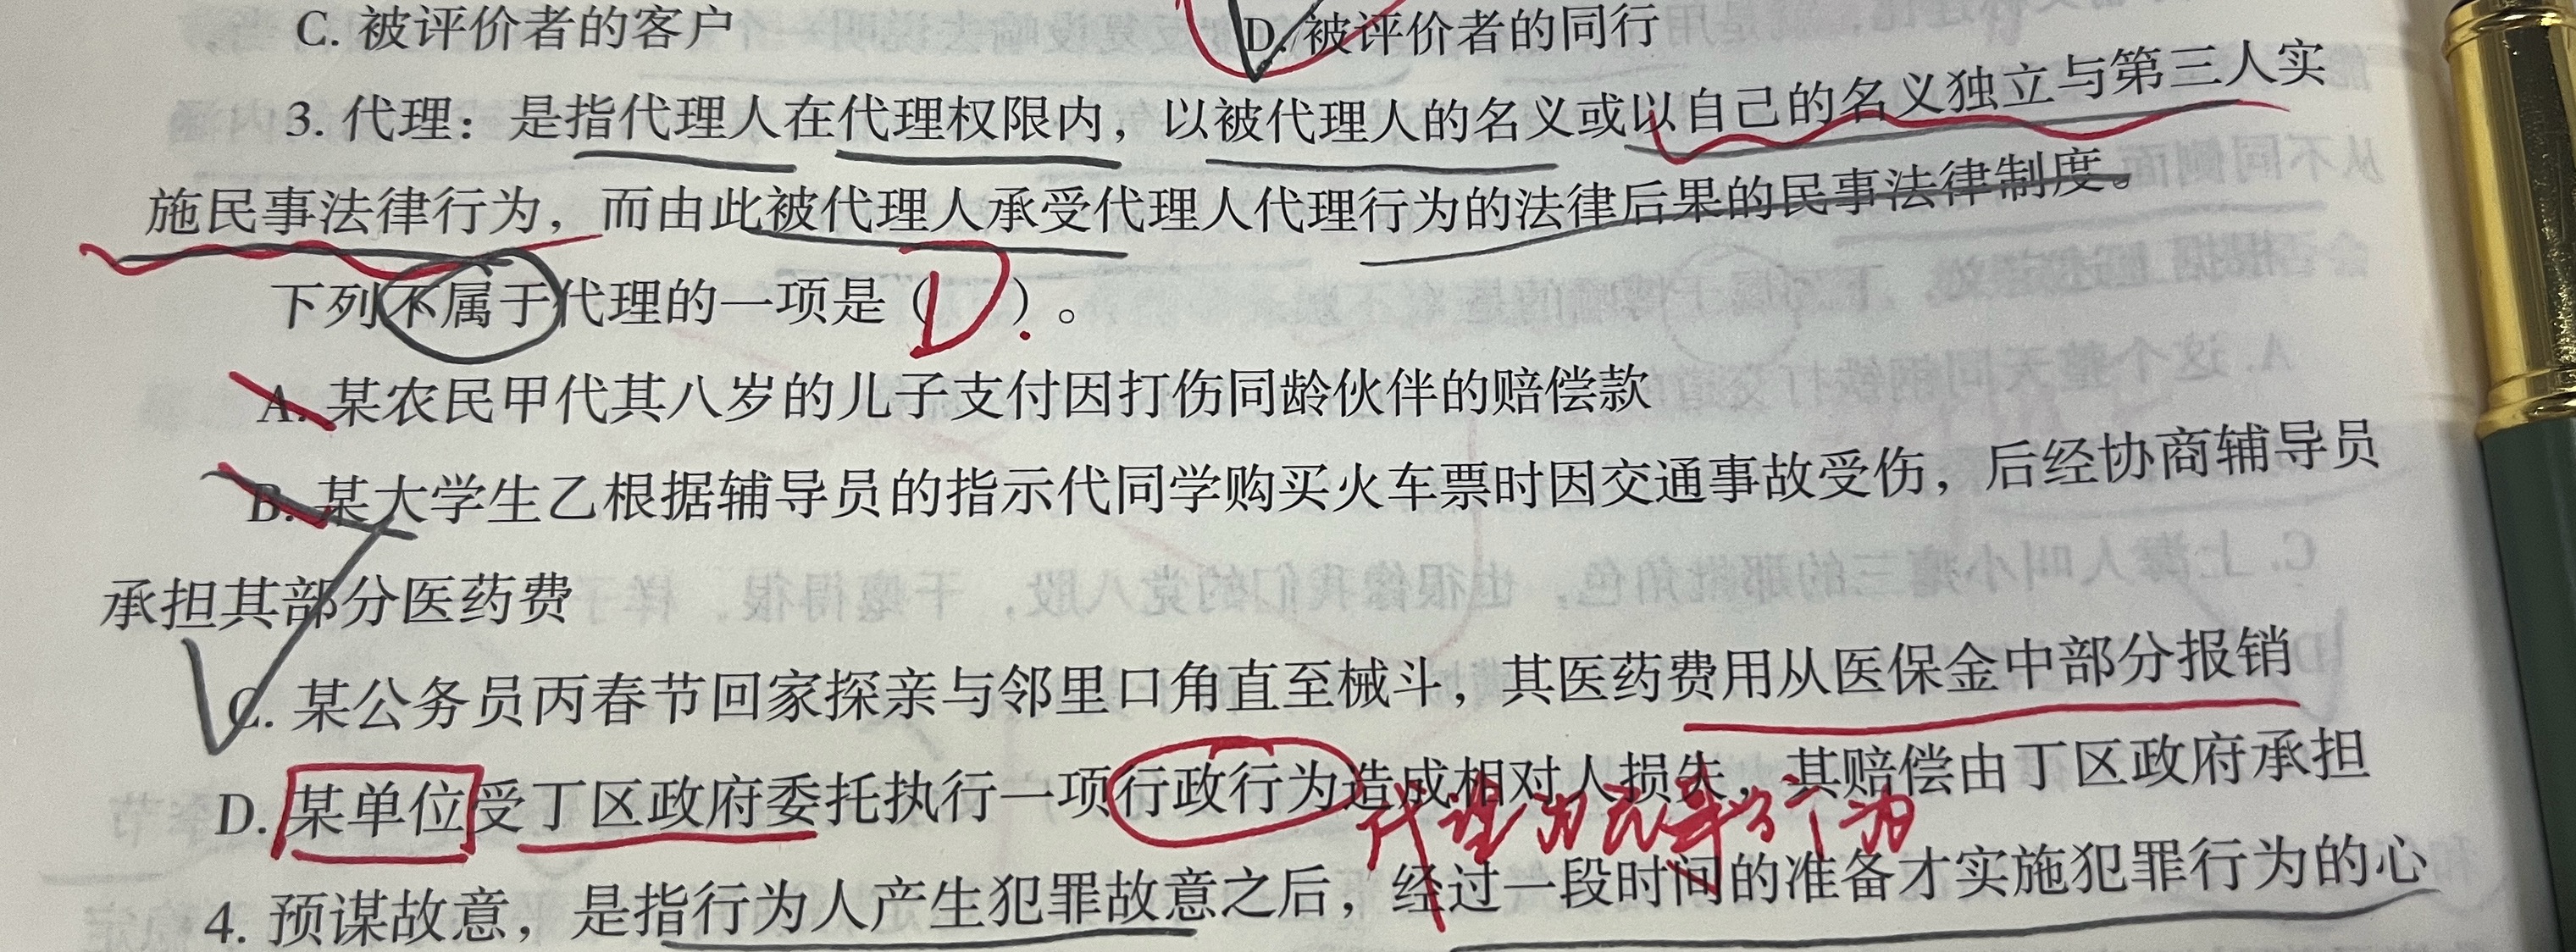 C. 被评价者的客户 D. 被评价者的同行
3. 代理：是指代理人在代理权限内，以被代理人的名义或以自己的名义独立与第三人实
施民事法律行为，而由此被代理人承受代理人代理行为的法律后果的民事法律制度。
下列不属于代理的一项是（D）。
A. 某农民甲代其八岁的儿子支付因打伤同龄伙伴的赔偿款
B. 某大学生乙根据辅导员的指示代同学购买火车票时因交通事故受伤，后经协商辅导员
承担其部分医药费
C. 某公务员丙春节回家探亲与邻里口角直至械斗，其医药费用从医保金中部分报销
D. 某单位受丁区政府委托执行一项行政行为造成相对人损失，其赔偿由丁区政府承担
代理为民事行为
4. 预谋故意，是指行为人产生犯罪故意之后，经过一段时间的准备才实施犯罪行为的心